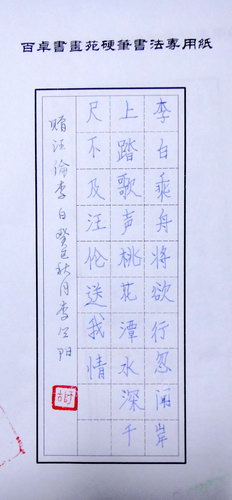 百卓書畫苑硬筆書法專用紙
李白乘舟将欲行忽闻岸
上踏歌声桃花潭水深千
尺不及汪伦送我情
赠汪倫李白癸巳秋月李